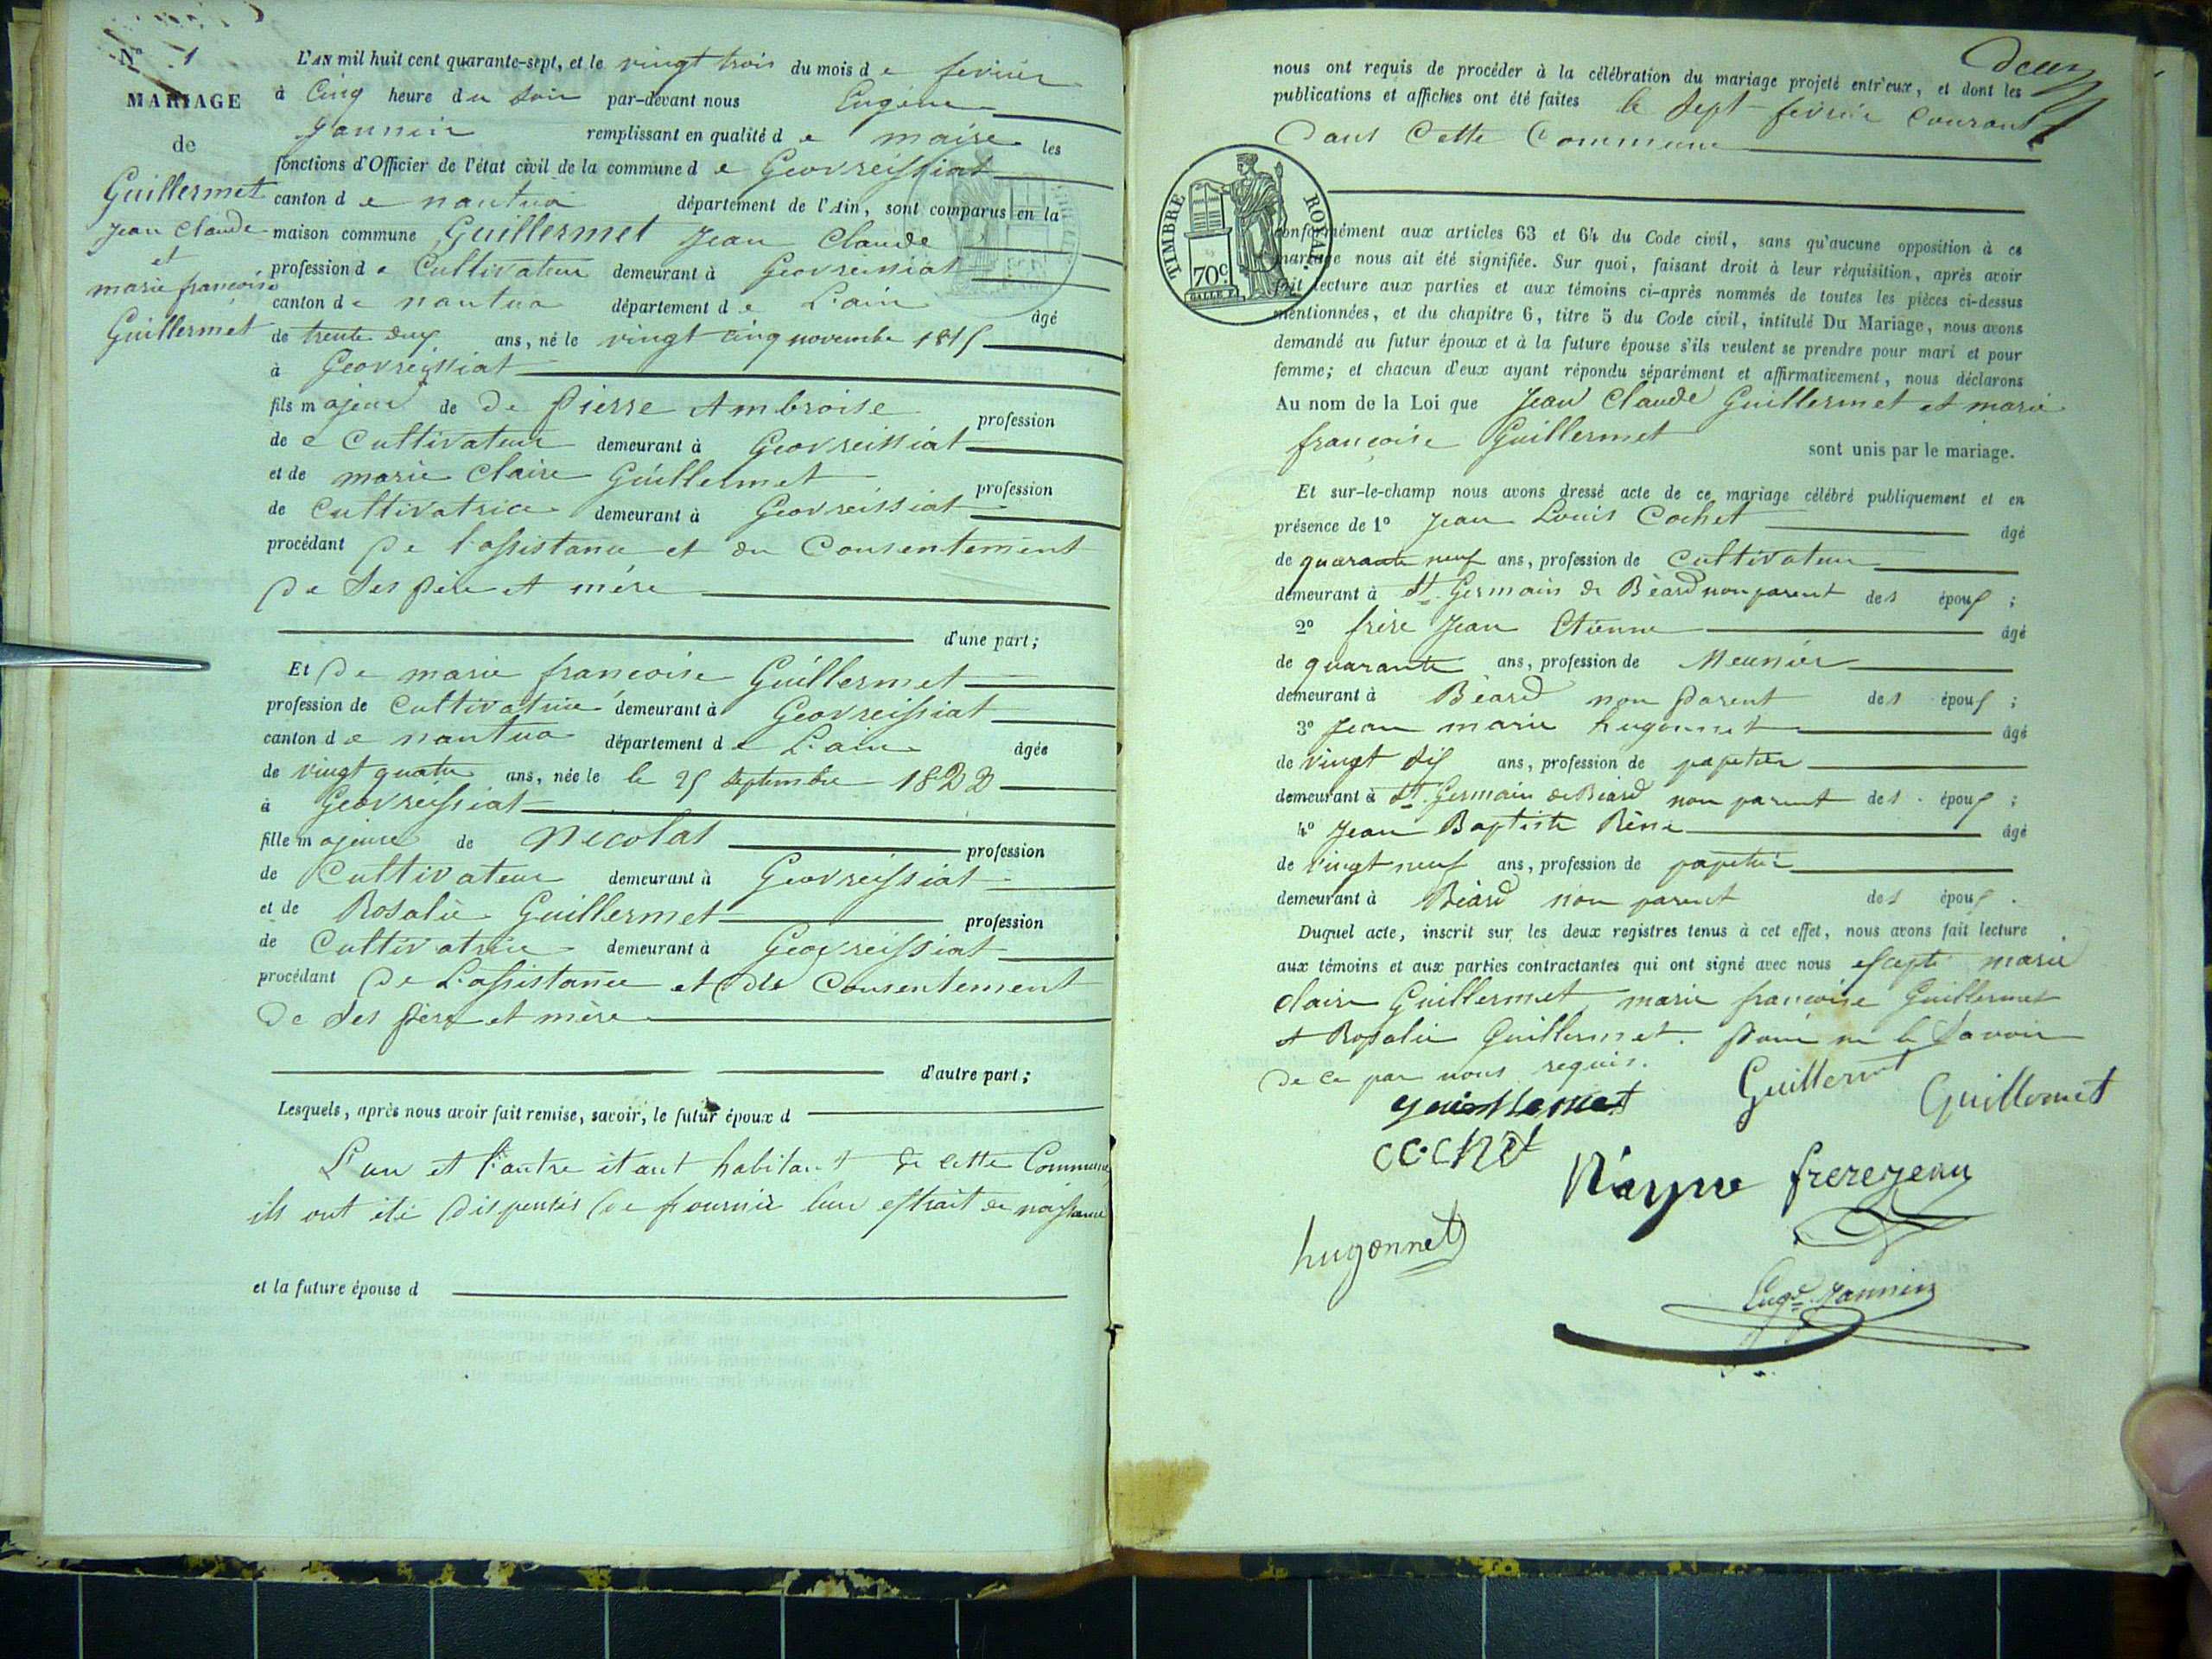 N° 1
MARIAGE
de
Guillermet
Jean Claude
et
marie françoise
Guillermet
L'AN mil huit cent quarante-sept, et le vingt trois du mois de fevrier
à Cinq heure du soir par-devant nous Eugène
Jannin remplissant en qualité de maire les
fonctions d'Officier de l'état civil de la commune de Geovreissiat
canton de nantua département de l'Ain, sont comparus en la
maison commune Guillermet Jean Claude
profession de Cultivateur demeurant à Geovreissiat
canton de nantua département de L'ain âgé
de trente ans, né le vingt cinq novembre 1815
à Geovreissiat
fils majeur de De Pierre Ambroise profession
de e Cultivateur demeurant à Geovreissiat
et de marie Claire Guillermet profession
de Cultivatrice demeurant à Geovreissiat
procédant De l'assistance et du Consentement
De Ses père et mère
d'une part;
Et De marie françoise Guillermet
profession de Cultivatrice demeurant à Geovreissiat
canton de nantua département de L'ain âgée
de vingt quatre ans, née le le 25 Septembre 1822
à Geovreissiat
fille majeure de Nicolas profession
de Cultivateur demeurant à Geovreissiat
et de Rosalie Guillermet profession
de Cultivatrice demeurant à Geovreissiat
procédant De L'assistance et du Consentement
De Ses père et mère
d'autre part;
Lesquels, après nous avoir fait remise, savoir, le futur époux d
L'un et l'autre étant habitant de cette Commune
ils ont été Dispensés de fournir leur extrait de naissance
et la future épouse d
Deux
nous ont requis de procéder à la célébration du mariage projeté entr'eux, et dont les
publications et affiches ont été faites le Sept fevrier Courant
Dans Cette Commune
TIMBRE ROYAL
70c.
conformément aux articles 63 et 64 du Code civil, sans qu'aucune opposition à ce
mariage nous ait été signifiée. Sur quoi, faisant droit à leur réquisition, après avoir
fait lecture aux parties et aux témoins ci-après nommés de toutes les pièces ci-dessus
mentionnées, et du chapitre 6, titre 5 du Code civil, intitulé Du Mariage, nous avons
demandé au futur époux et à la future épouse s'ils veulent se prendre pour mari et pour
femme; et chacun d'eux ayant répondu séparément et affirmativement, nous déclarons
Au nom de la Loi que Jean Claude Guillermet et marie
françoise Guillermet sont unis par le mariage.
Et sur-le-champ nous avons dressé acte de ce mariage célébré publiquement et en
présence de 1° Jean Louis Cochet âgé
de quarante neuf ans, profession de Cultivateur
demeurant à St. Germain de Béard non parent des époux ;
2° frère Jean Etienne âgé
de quarante ans, profession de Meunier
demeurant à Béard non Parent des époux ;
3° Jean marie hugonnet âgé
de vingt six ans, profession de papetier
demeurant à St. Germain de Béard non parent des époux ;
4° Jean Baptiste âgé
de vingt neuf ans, profession de papetier
demeurant à Béard non parent des époux .
Duquel acte, inscrit sur les deux registres tenus à cet effet, nous avons fait lecture
aux témoins et aux parties contractantes qui ont signé avec nous excepté marie
claire Guillermet marie françoise Guillermet
et Rosalie Guillermet. pour ne le Savoir
De ce par nous requis.
Guillermet
Guillermet
Guillermet
cochet
frerejean
hugonnet
Eugne Jannin